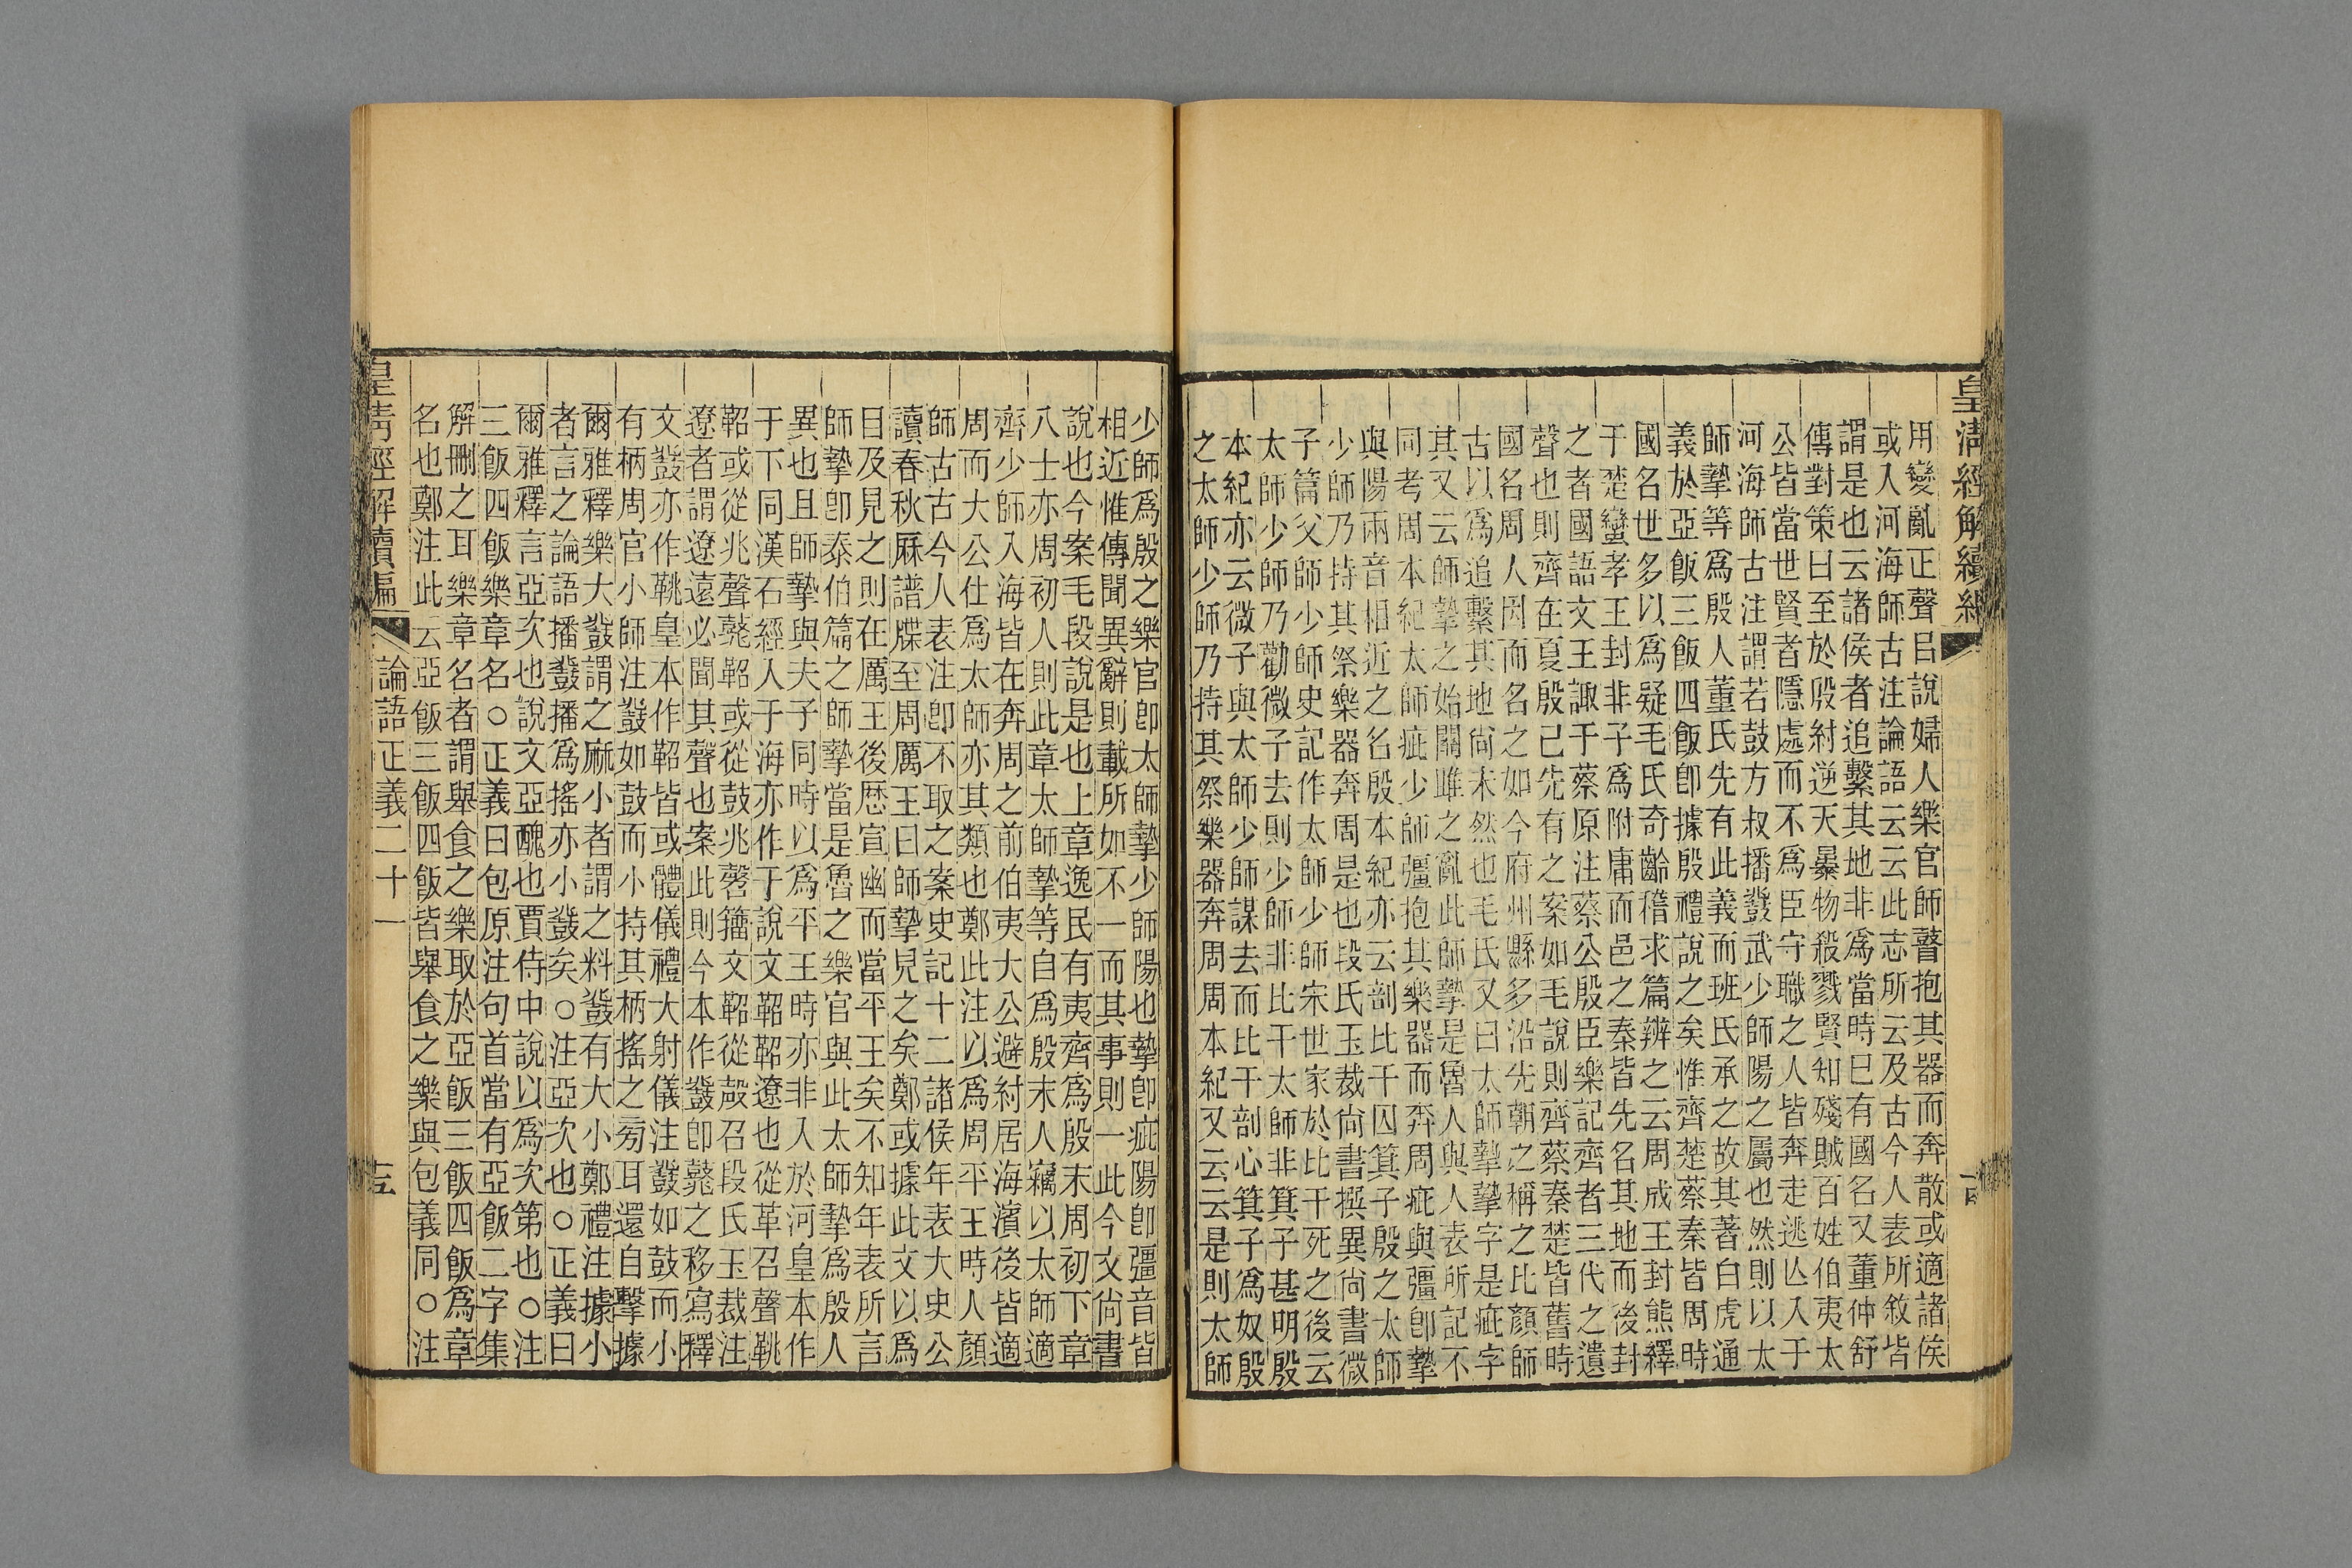 皇清經解續編
用變亂正聲㠯說婦人樂官師瞽抱其器而奔散或適諸侯
或入河海師古注論語云云此志所云及古今人表所敘皆
謂是也云諸侯者追繫其地非爲當時巳有國名又董仲舒
傳對策曰至於殷紂逆天暴物殺戮賢知殘賊百姓伯夷太
公皆當世賢者隱處而不爲臣守職之人皆奔走逃亾入于
河海師古注謂若鼓方叔播鼗武少師陽之屬也然則以太
師摯等爲殷人董氏先有此義而班氏承之故其著白虎通
義於亞飯三飯四飯卽據殷禮說之矣惟齊楚蔡秦皆周時
國名世多以爲疑毛氏奇齡稽求篇辨之云周成王封熊繹
于楚蠻孝王封非子爲附庸而邑之秦皆先名其地而後封
之者國語文王諏于蔡原注蔡公殷臣樂記齊者三代之遺
聲也則齊在夏殷已先有之案如毛說則齊蔡秦楚皆舊時
國名周人因而名之如今府州縣多沿先朝之稱之比顏師
古以爲追繫其地尙未然也毛氏又曰太師摯摯字是疵字
其又云師摯之始關雎之亂此師摯是魯人與人表所記不
同考周本紀太師疵少師彊抱其樂器而奔周疵與彊卽摯
與陽兩音相近之名殷本紀亦云剖比干囚箕子殷之太師
少師乃持其祭樂器奔周是也段氏玉裁尙書撰異尙書微
子篇父師少師史記作太師少師宋世家於比干死之後云
太師少師乃勸微子去則少師非比干太師非箕子甚明殷
本紀亦云微子與太師少師謀去而比干剖心箕子爲奴殷
之太師少師乃持其祭樂器奔周周本紀又云云是則太師
少師爲殷之樂官卽太師摯少師陽也摯卽疵陽卽彊音皆
相近惟傳聞異辭則載所如不一而其事則一此今文尙書
說也今案毛段說是也上章逸民有夷齊爲殷末周初下章
八士亦周初人則此章太師摯等自爲殷末人竊以太師適
齊少師入海皆在奔周之前伯夷大公避紂居海濱後皆適
周而大公仕爲太師亦其類也鄭此注以爲周平王時人顏
師古古今人表注卽不取之案史記十二諸侯年表大史公
讀春秋厤譜牒至周厲王曰師摯見之矣鄭或據此文以爲
目及見之則在厲王後歷宣幽而當平王矣不知年表所言
師摯卽泰伯篇之師摯當是魯之樂官與此太師摯爲殷人
異也且師摯與夫子同時以爲平王時亦非入於河皇本作
于下同漢石經人于海亦作于說文鞀鞀遼也從革召聲鞉
鞀或從兆聲鼗鞀或從鼓兆磬籀文鞀從殸召段氏玉裁注
遼者謂遼遠必聞其聲也案此則今本作鼗卽鼗之移寫釋
文鼗亦作鞉皇本作鞀皆或體儀禮大射儀注鼗如鼓而小
有柄周官小師注鼗如鼓而小持其柄搖之旁耳還自擊據
爾雅釋樂大鼗謂之麻小者謂之料鼗有大小鄭禮注據小
者言之論語播鼗播爲搖亦小鼗矣○注亞次也○正義曰
爾雅釋言亞次也說文亞醜也賈侍中說以爲次第也○注
三飯四飯樂章名○正義曰包原注句首當有亞飯二字集
解刪之耳樂章名者謂舉食之樂取於亞飯三飯四飯爲章
名也鄭注此云亞飯三飯四飯皆舉食之樂與包義同○注
皇清經解續編
論語正義二十一